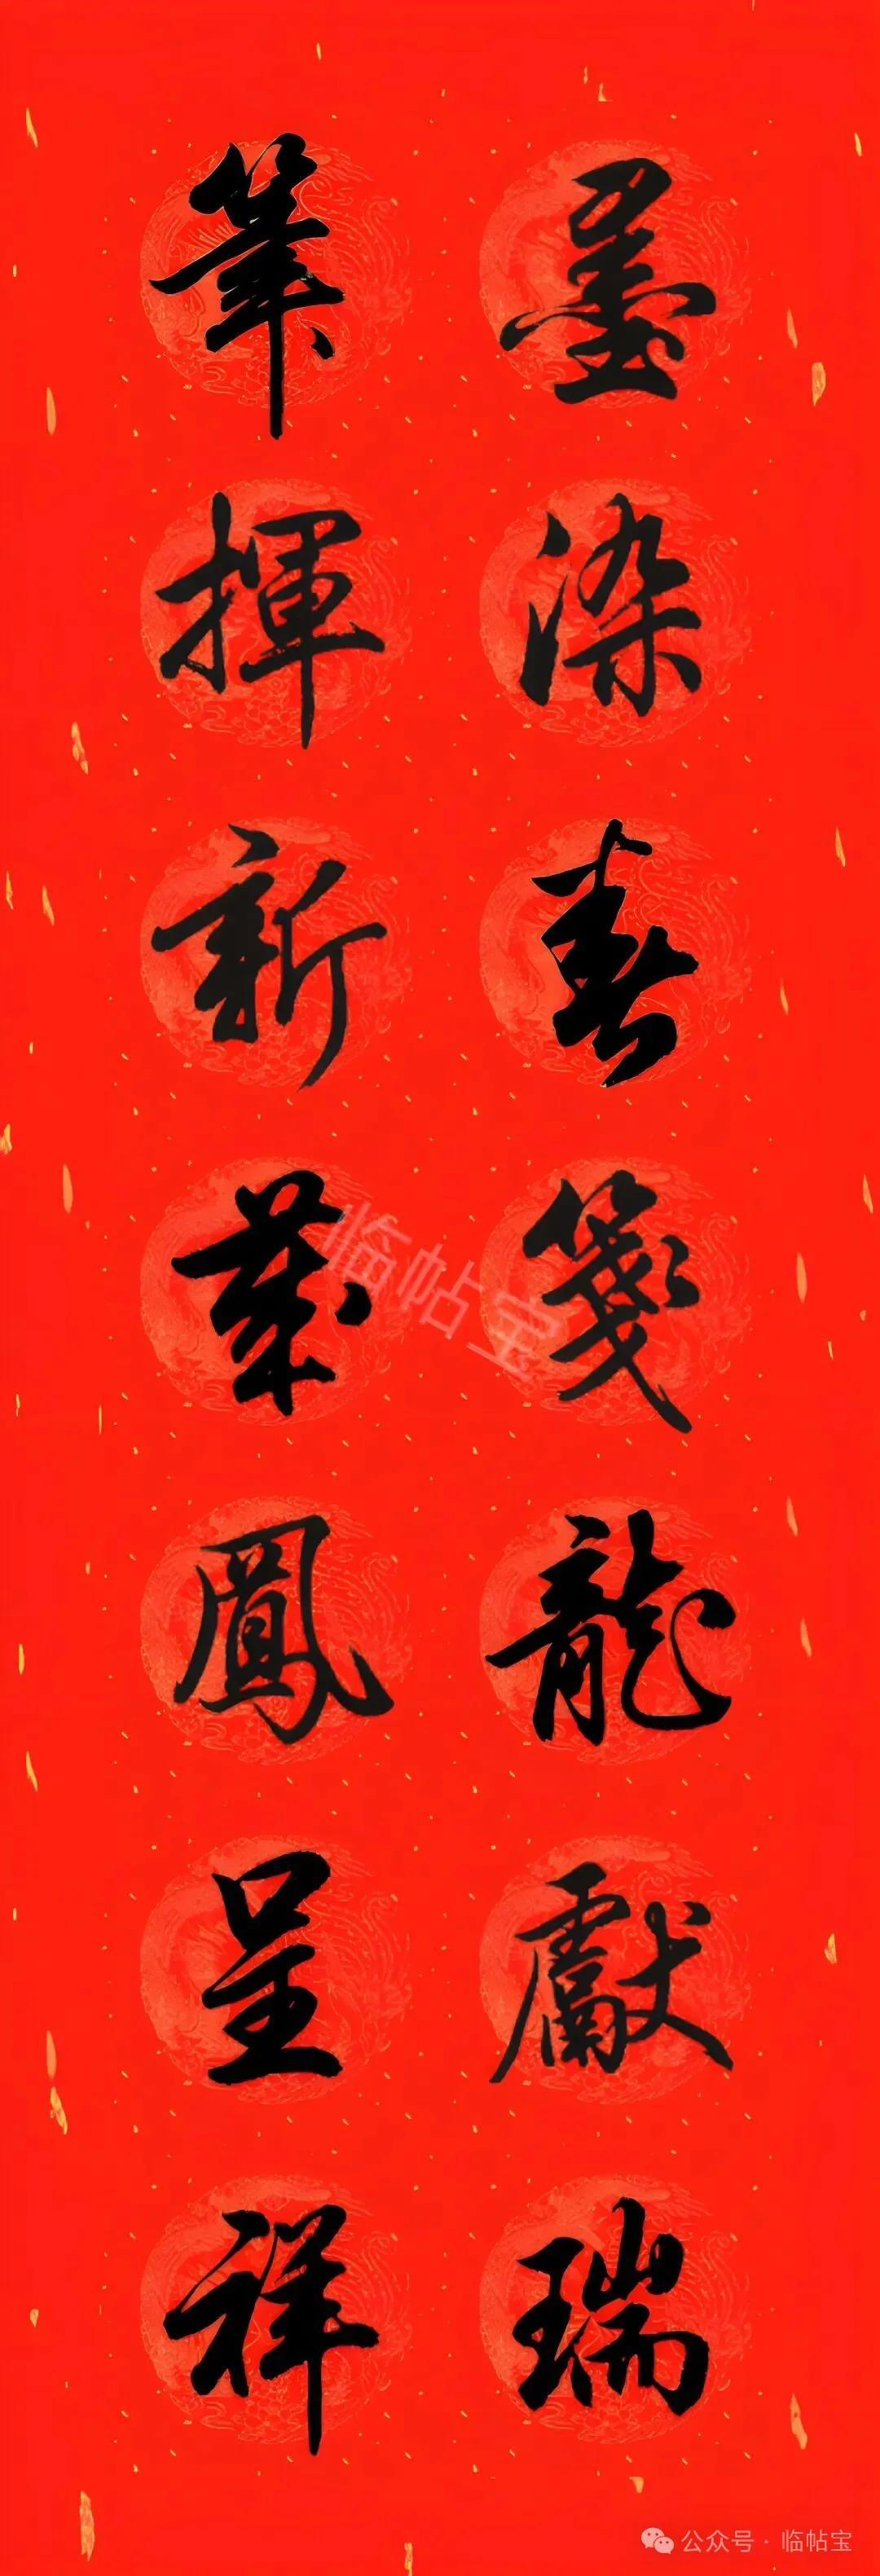 墨染春箋龍獻瑞
筆揮新歲鳳呈祥
临帖宝
公众号·临帖宝